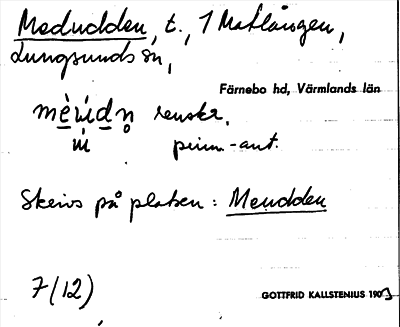 Medudden, t., 1 Matlången,
Lungsunds sn,
Färnebo hd, Värmlands län
renskr.
prim.-ant.
Skrivs på platsen: Meudden
7(12)
GOTTFRID KALLSTENIUS 1903